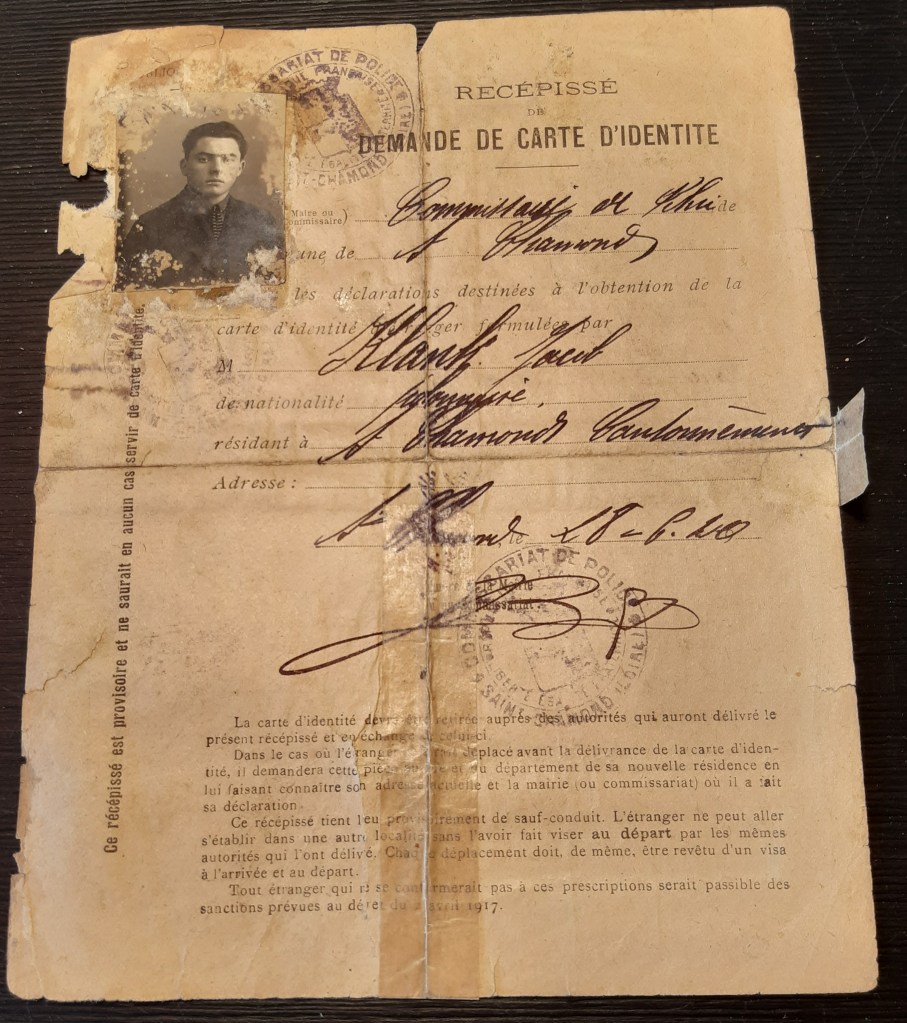 RÉCÉPISSÉ
DE
DEMANDE DE CARTE D'IDENTITE
COMMISSARIAT DE POLICE
SAINT-CHAMOND (LOIRE)
Maire ou
Commissaire)
de
une de St Chamond
les déclarations destinées à l'obtention de la
carte d'identité d'étranger formulées par
M
de nationalité polonaise
résidant à St Chamond Cantonnement
Adresse :
St Chamond, le 28-6-20
La carte d'identité devra être retirée auprès des autorités qui auront délivré le
présent récépissé et en échange de celui-ci.
Dans le cas où l'étranger se serait déplacé avant la délivrance de la carte d'iden-
tité, il demandera cette pièce au préfet du département de sa nouvelle résidence en
lui faisant connaître son adresse actuelle et la mairie (ou commissariat) où il a fait
sa déclaration.
Ce récépissé tient lieu provisoirement de sauf-conduit. L'étranger ne peut aller
s'établir dans une autre localité sans l'avoir fait viser au départ par les mêmes
autorités qui l'ont délivé. Chaque déplacement doit, de même, être revêtu d'un visa
à l'arrivée et au départ.
Tout étranger qui ne se conformerait pas à ces prescriptions serait passible des
sanctions prévues au décret du 2 avril 1917.
Ce récépissé est provisoire et ne saurait en aucun cas servir de carte d'identité.
COMMISSARIAT DE POLICE
SAINT-CHAMOND (LOIRE)